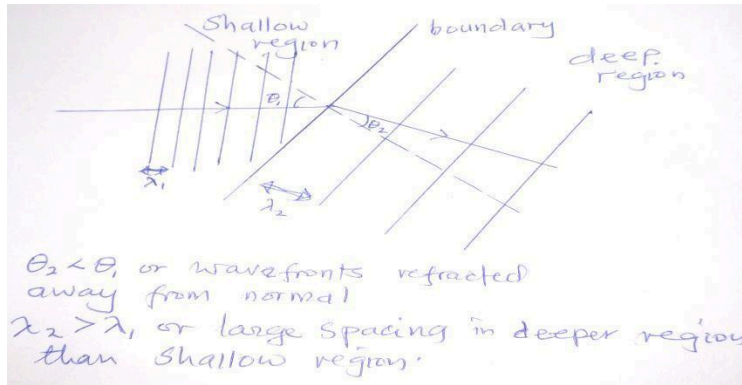 Shallow
region
boundary
deep
region
θ₁
θ₂
λ₁
λ₂
θ₂ < θ₁ or wavefronts refracted
away from normal
λ₂ > λ₁ or large spacing in deeper region
than shallow region.